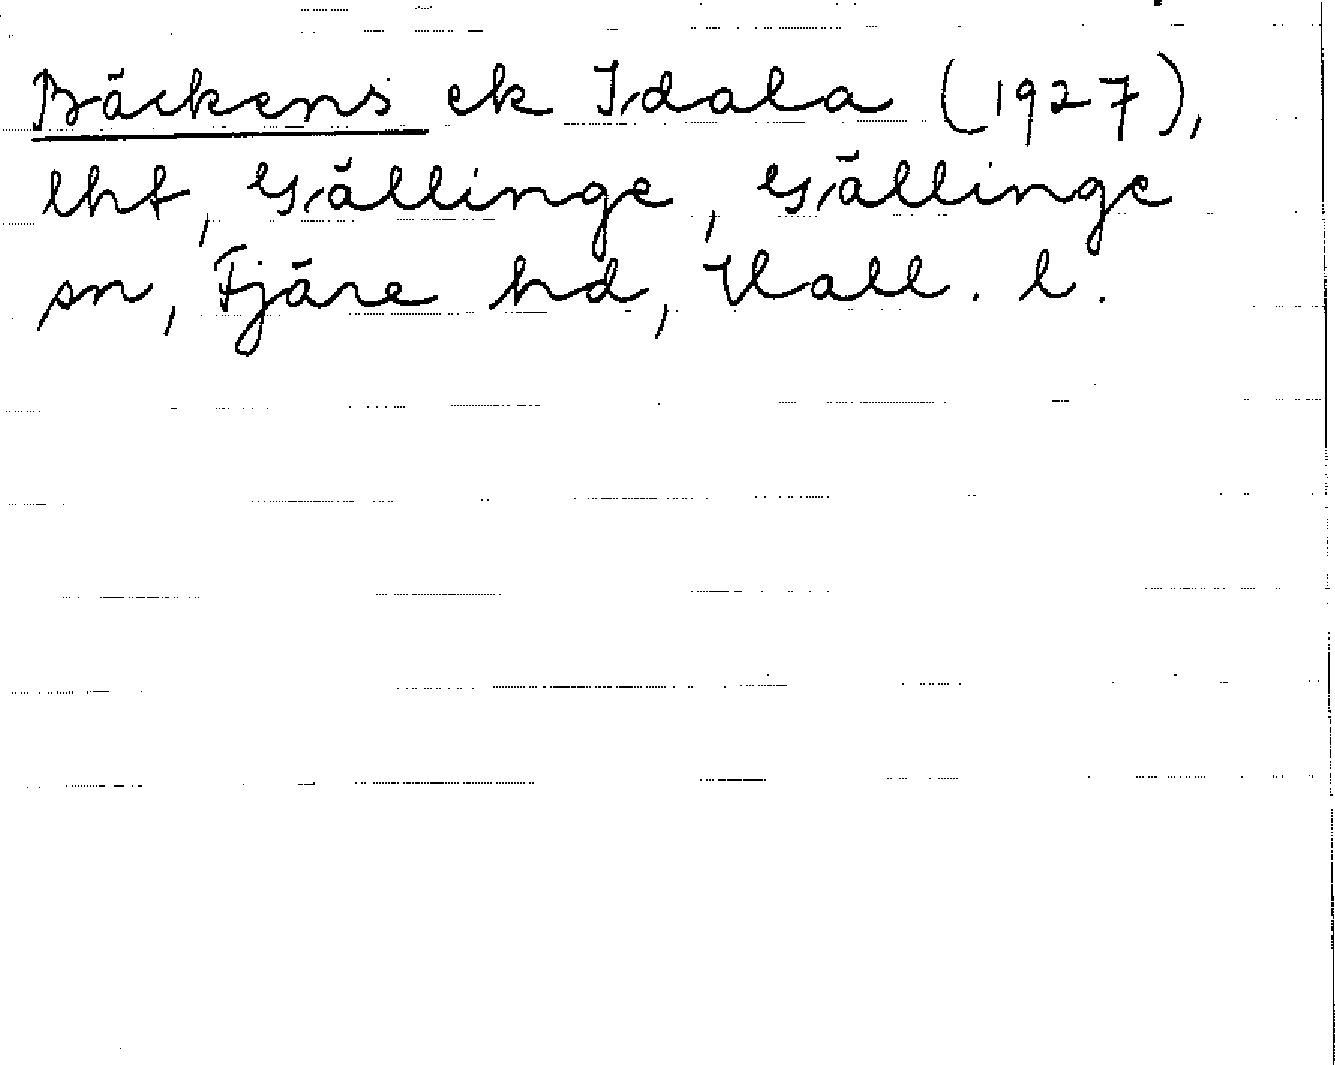 Bäckens ek Idala (1927),
lht, Gällinge, Gällinge
sn, Fjäre hd, Hall. l.